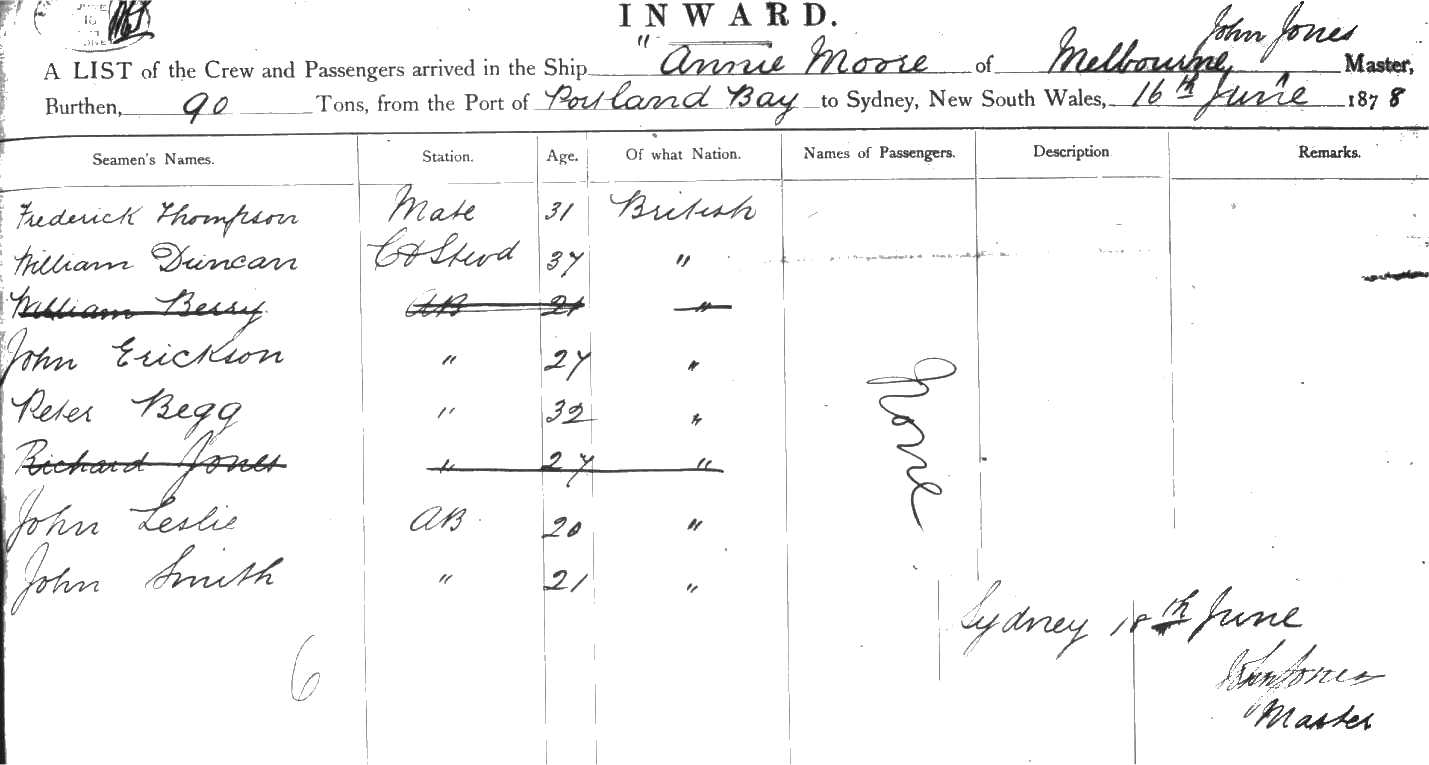 INWARD.
John Jones
A LIST of the Crew and Passengers arrived in the Ship " Annie Moore of Melbourne, Master,
Burthen, 90 Tons, from the Port of Portland Bay to Sydney, New South Wales, 16th June 1878
Seamen's Names. Station. Age. Of what Nation. Names of Passengers. Description Remarks.
Frederick Thompson Mate 31 British
William Duncan C & Stewd 37 "
William Berry AB 21 "
John Erickson " 27 "
Peter Begg " 32 "
None
Richard Jones " 27 "
John Leslie AB 20 "
John Smith " 21 "
Sydney 18th June
6
John Jones
Master